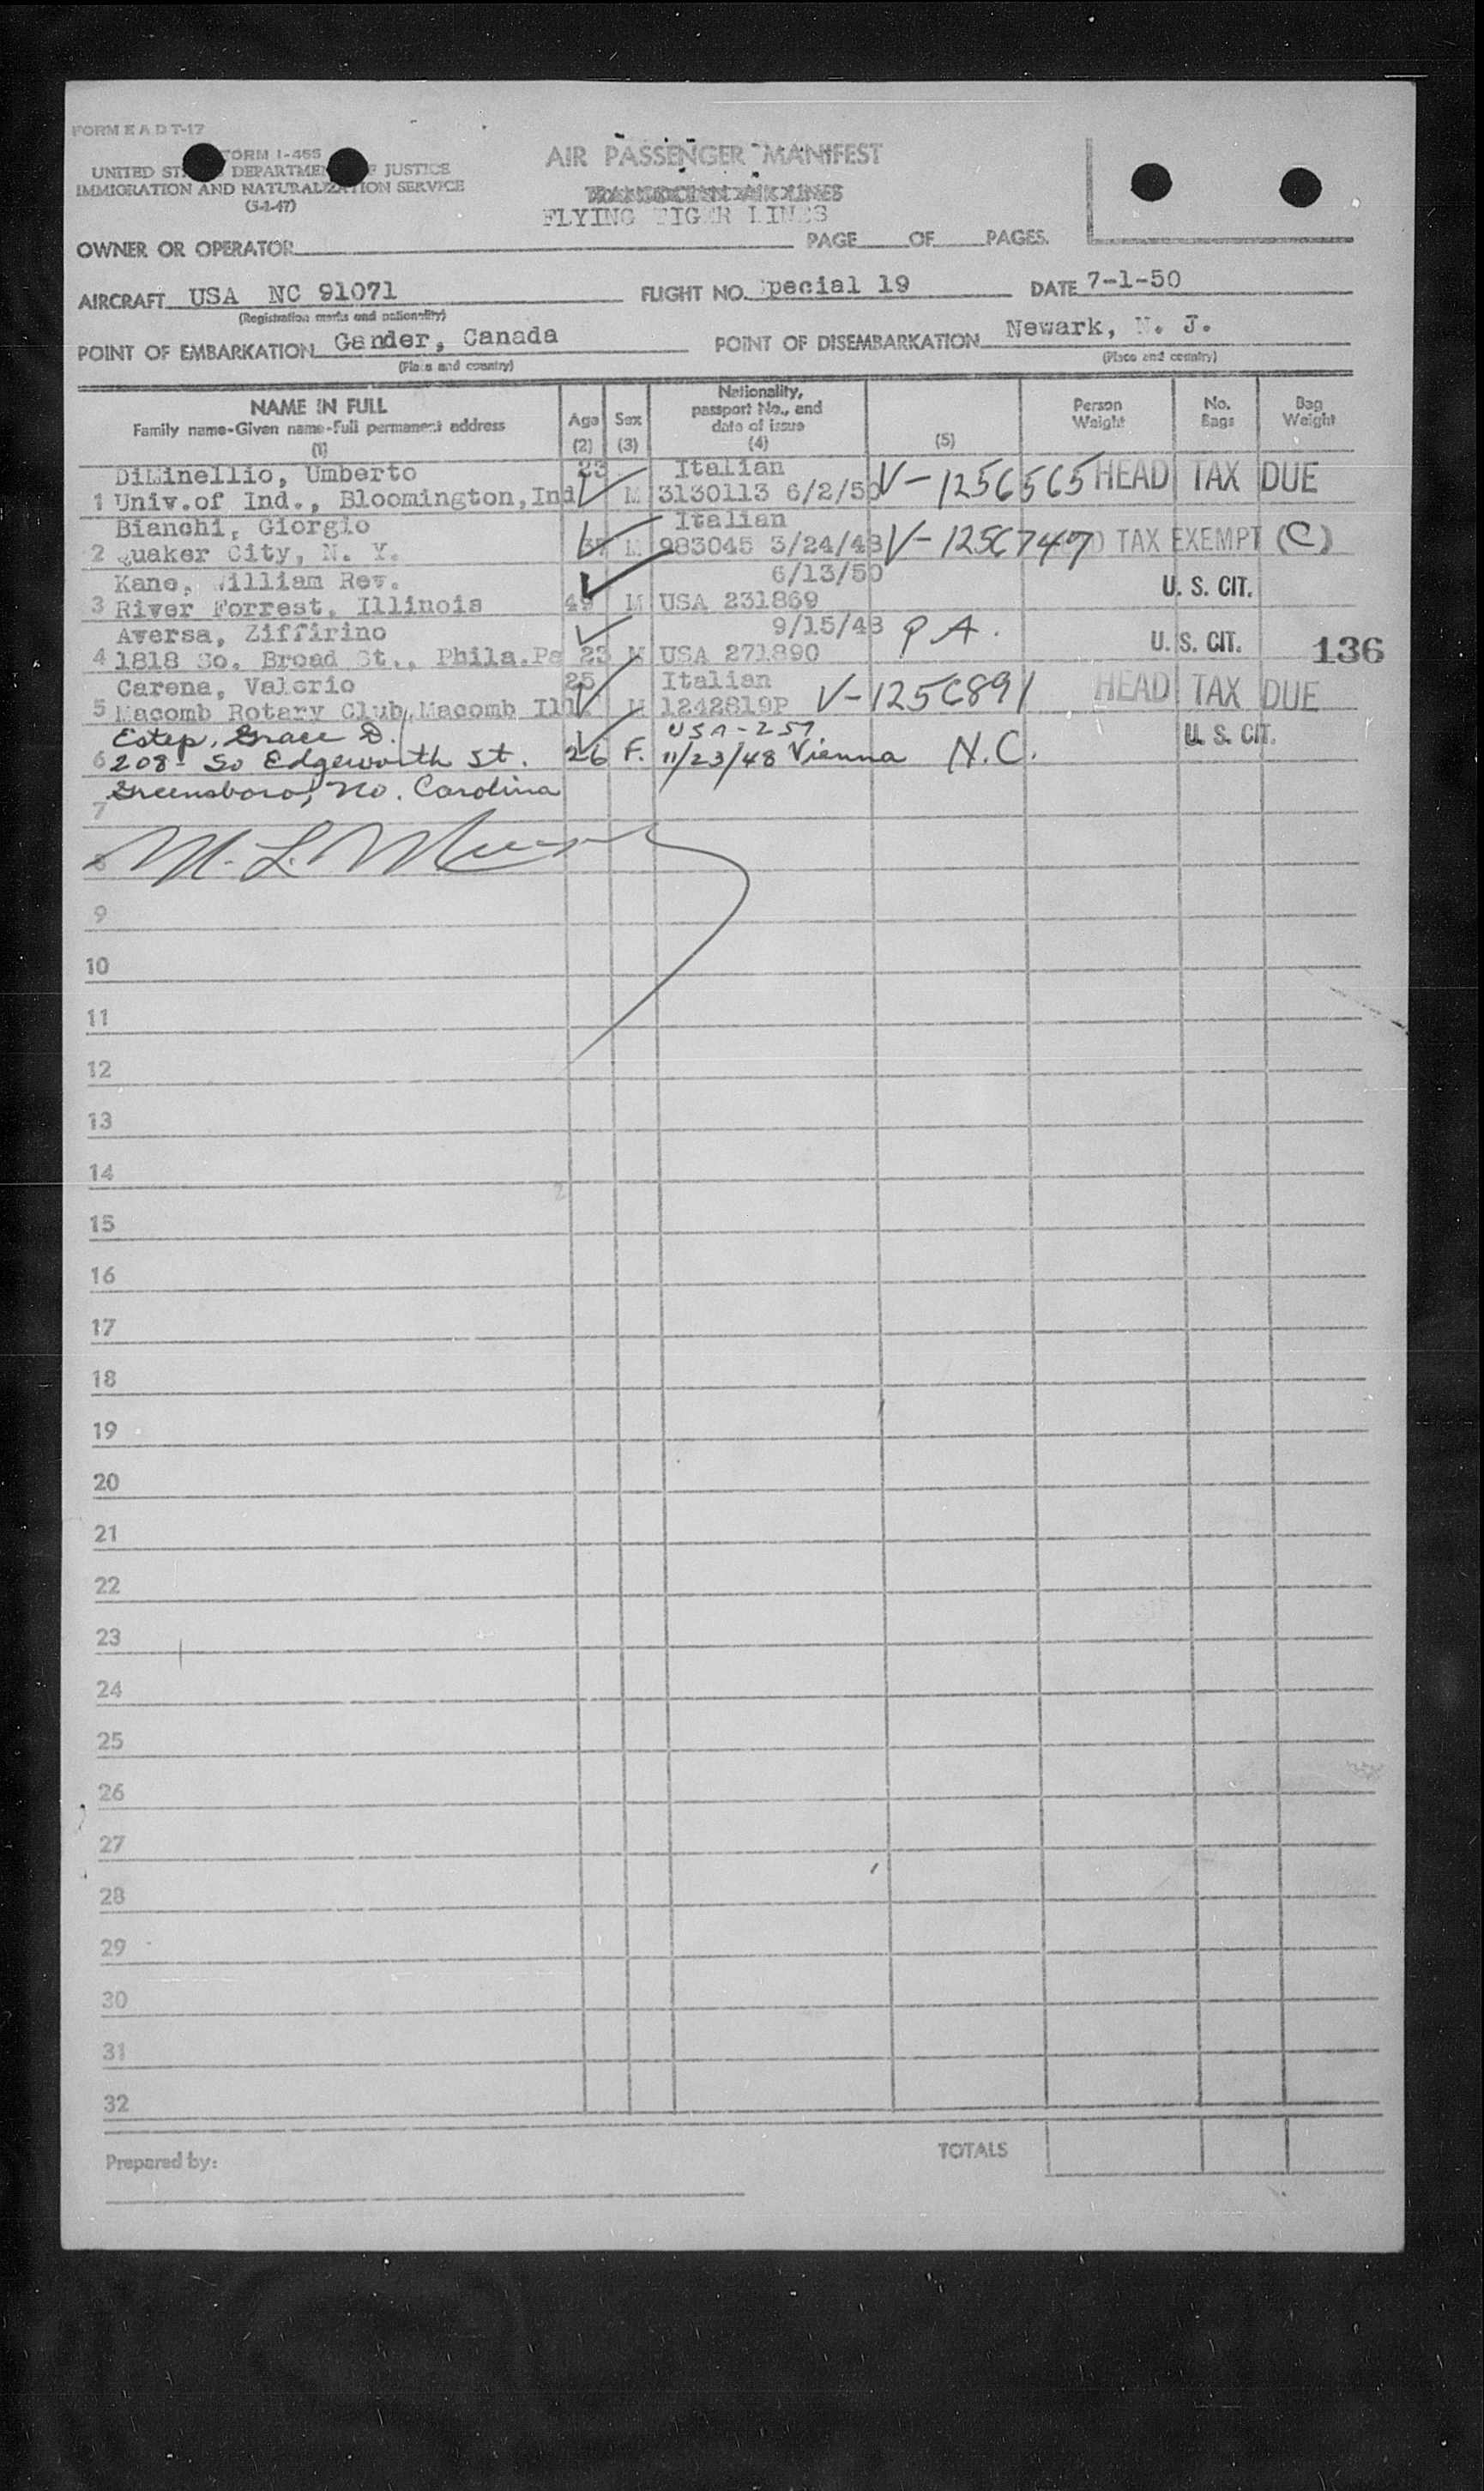 FORM E A D T-17
FORM I-455
UNITED ST DEPARTMEN F JUSTICE
IMMIGRATION AND NATURALIZATION SERVICE
(5-1-47)
AIR PASSENGER MANIFEST
TRANSOCEAN AIR LINES
FLYING TIGER LINES
OWNER OR OPERATOR PAGE OF PAGES.
AIRCRAFT USA NC 91071 FLIGHT NO. pecial 19 DATE 7-1-50
(Registration marks and nationality)
POINT OF EMBARKATION Gander, Canada POINT OF DISEMBARKATION Newark, N. J.
(Place and country) (Place and country)
NAME IN FULL Age Sex Nationality, passport No., and date of issue Person Weight No. Bags Bag Weight
Family name-Given name-Full permanent address
(1) (2) (3) (4) (5)
DiMinellio, Umberto 23 Italian
1 Univ.of Ind., Bloomington,Ind M 3130113 6/2/50 V-1256565 HEAD TAX DUE
Bianchi, Giorgio Italian
2 Quaker City, N. Y. M 983045 3/24/48 V-1256747 D TAX EXEMPT (C)
Kane, William Rev. 6/13/50
3 River Forrest, Illinois 49 M USA 231869 U. S. CIT.
Aversa, Ziffirino 9/15/48 P A.
4 1818 So. Broad St., Phila.Pa 23 M USA 271890 U. S. CIT. 136
Carena, Valerio 25 Italian
5 Macomb Rotary Club, Macomb Ill. M 1242819P V-1256891 HEAD TAX DUE
Estep, Grace D. USA-257. U. S. CIT.
6 208 So Edgeworth St. 26 F. 11/23/48 Vienna N.C.
Greensboro, No. Carolina
7
8 M. L.
9
10
11
12
13
14
15
16
17
18
19
20
21
22
23
24
25
26
27
28
29
30
31
32
Prepared by: TOTALS